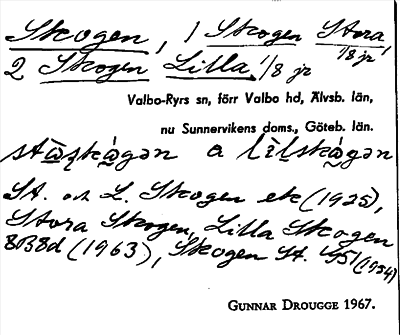 Skogen, 1 Skogen Stora, 1/8 jr
2 Skogen Lilla, 1/8 jr
Valbo-Ryrs sn, förr Valbo hd, Älvsb. län,
nu Sunnervikens doms., Göteb. län.
a
St. och L. Skogen ek (1925),
Stora Skogen, Lilla Skogen
8B8d (1963), Skogen St. 1951 (1954)
GUNNAR DROUGGE 1967.